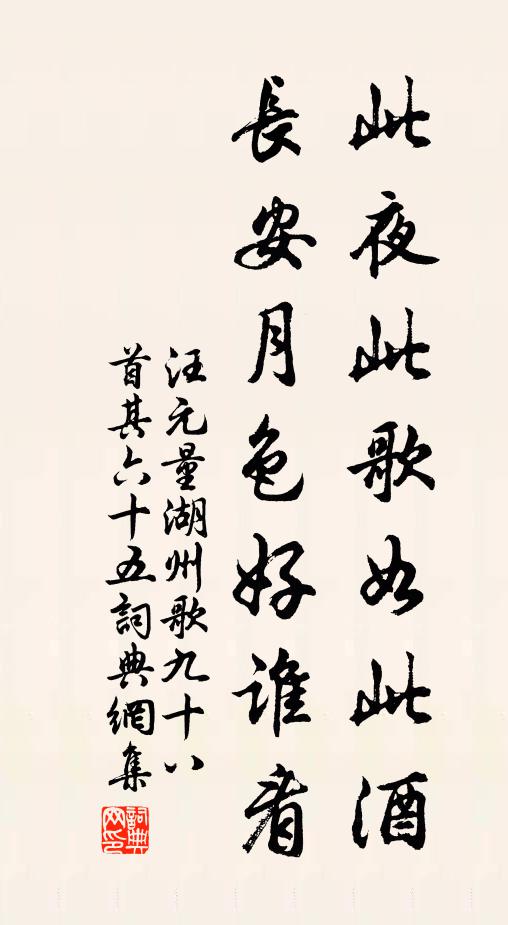 此夜此歌如此酒
長安月色好誰看
汪元量湖州歌九十八
首其六十五詞典網集
詞典
网印